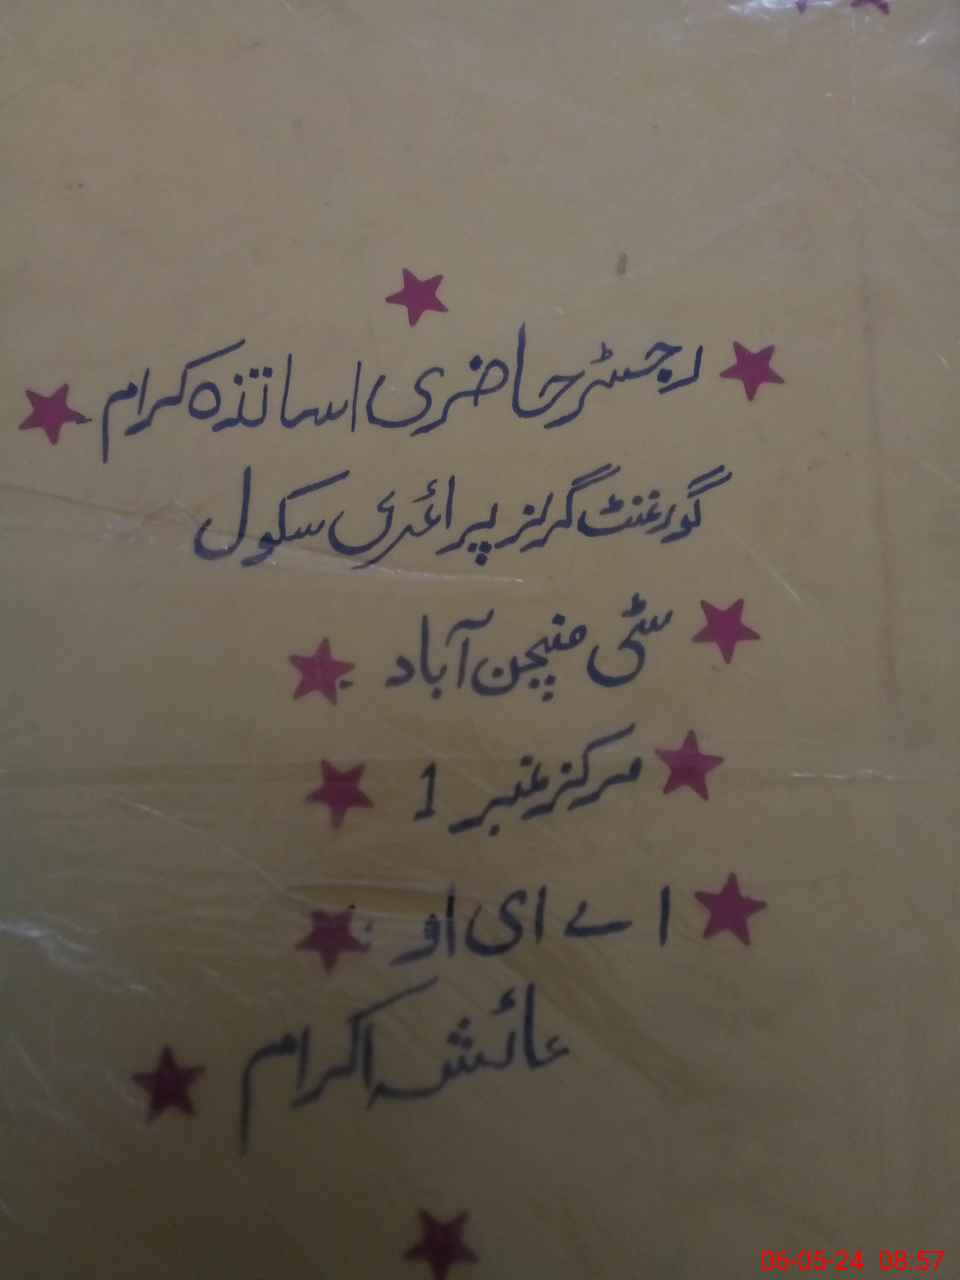 رجسٹر حاضری اساتذہ کرام
گورنمنٹ گرلز پرائمری سکول
سٹی منچن آباد
مرکز نمبر 1
اے ای او
عائشہ اکرام
06-05-24 08:57